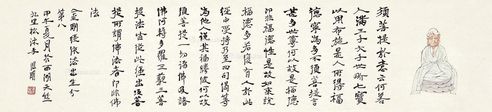 須菩提於意云何若
人滿三千大千世界七寶
以用布施是人所得福
德寧為多不須菩提言
甚多世尊何以故是福德
即非福德性是故如來說
福德多若復有人於此
經中受持乃至四句偈等
為他人說其福勝彼何以故
須菩提一切諸佛及諸
佛阿耨多羅三藐三菩
提法皆從此經出須菩
提所謂佛法者即非佛
法
金剛經依法出生分
第八
甲午夏月於西湖天竺